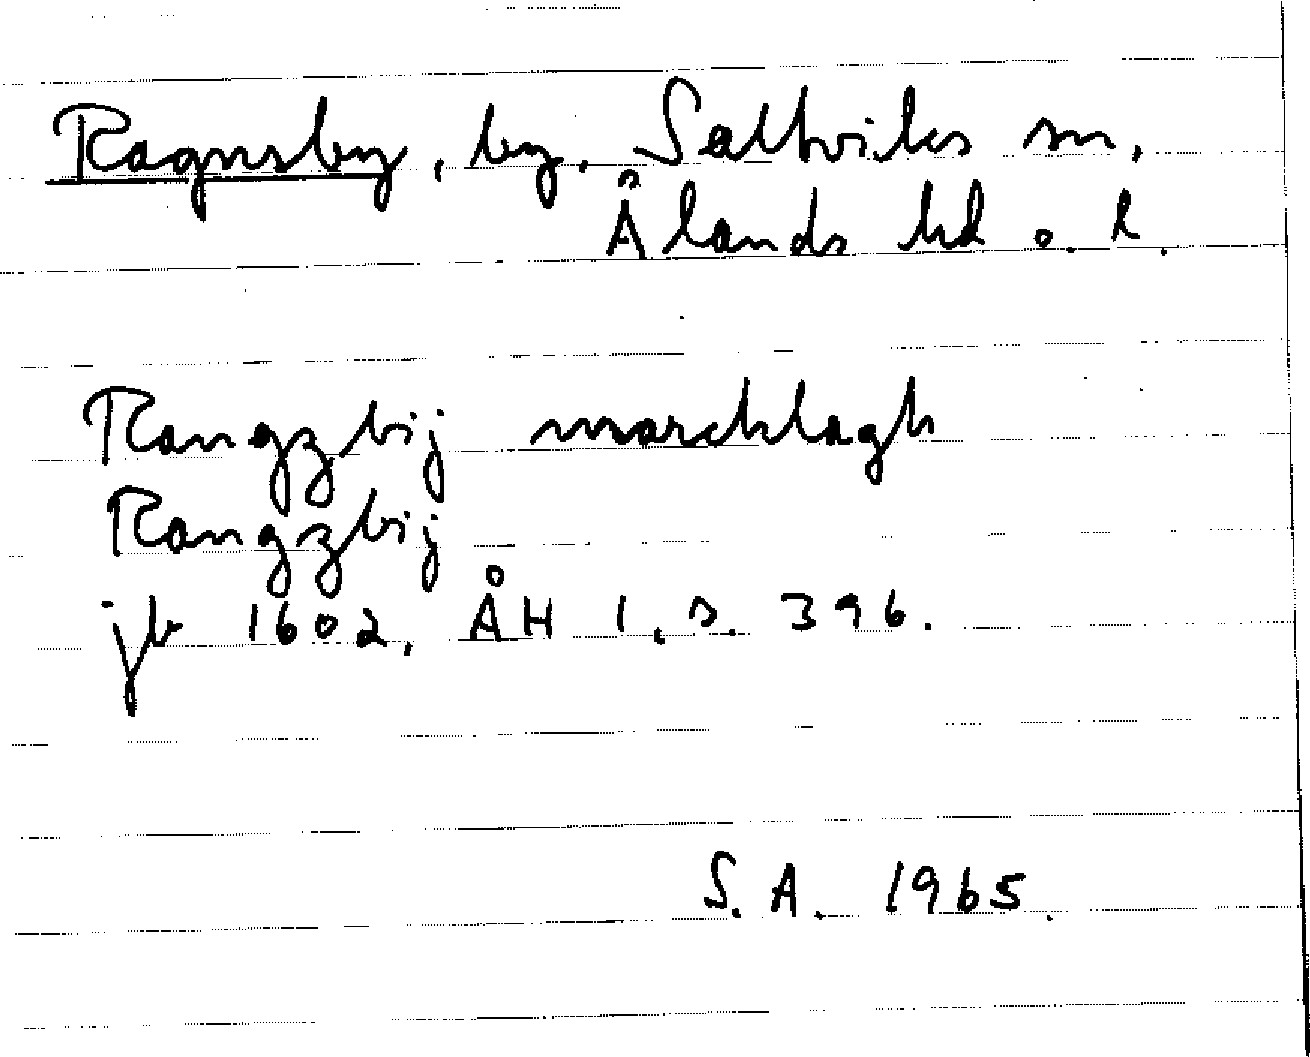 Ragnsby, by, Saltviks sn,
Ålands hd o. l.
Rangzbij marchlagh
Rangzbij
jb 1602, ÅH 1, s. 396.
S. A. 1965.